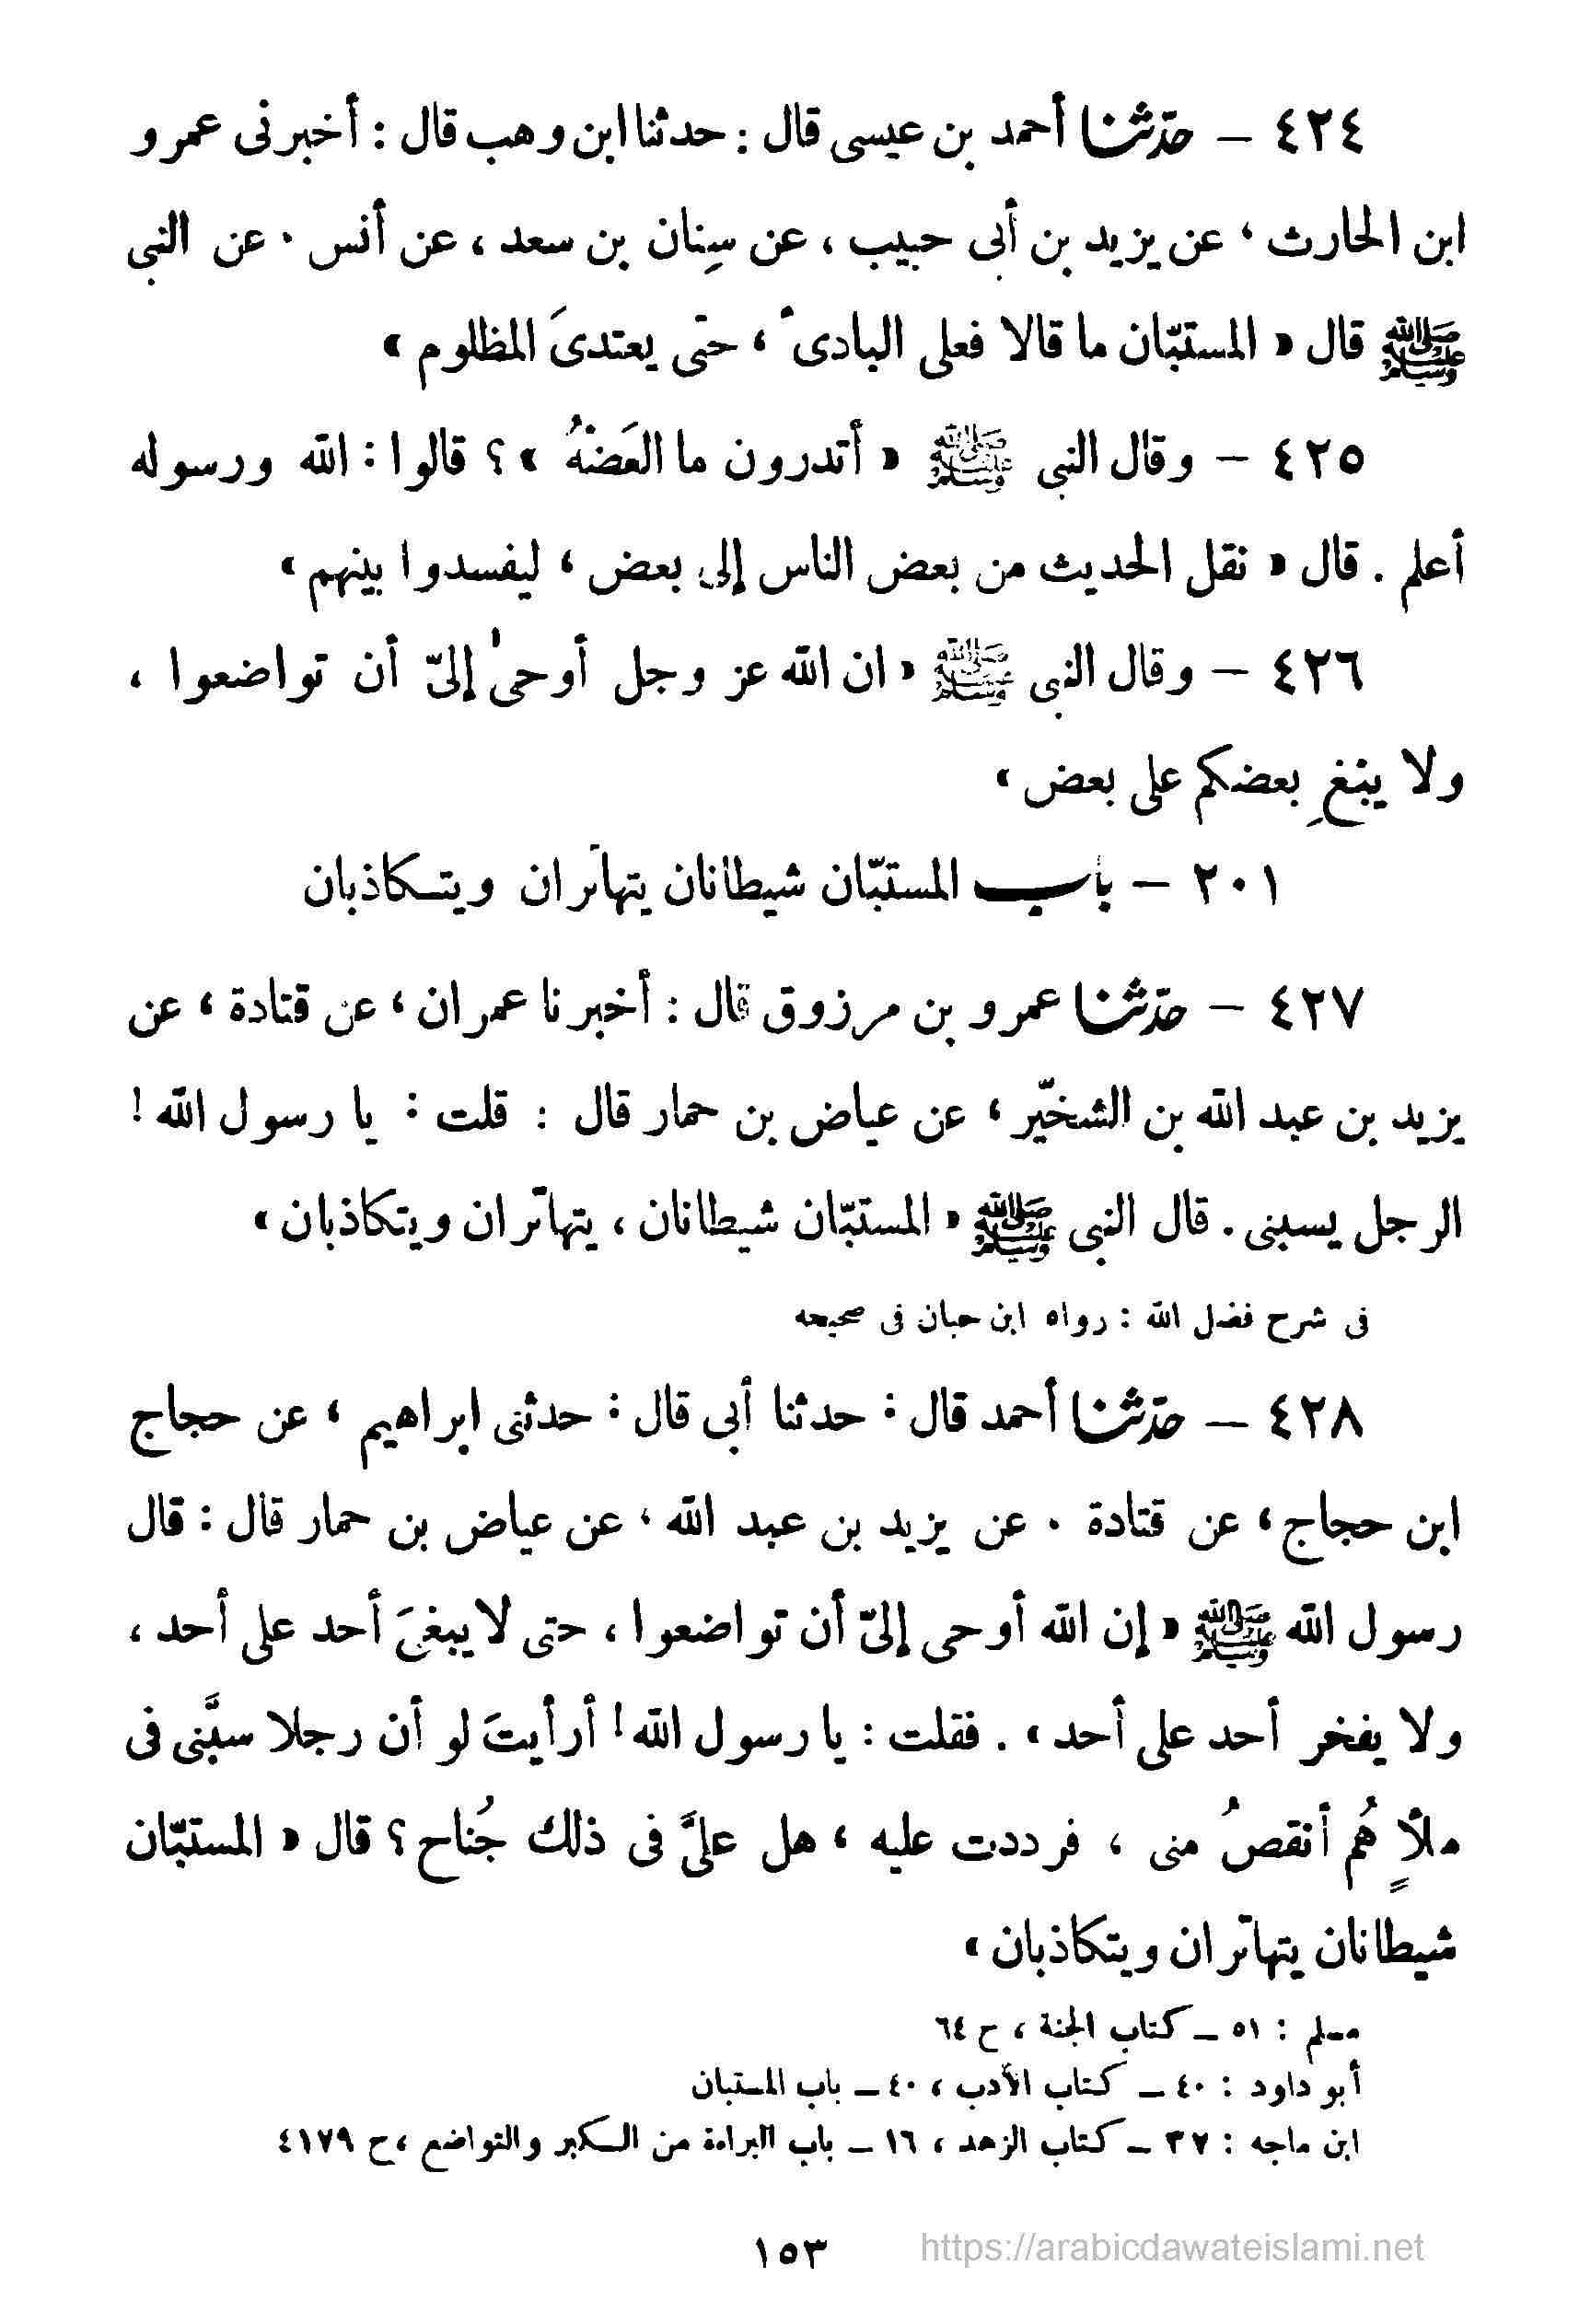 ٤٢٤ – حدّثنا أحمد بن عيسى قال : حدثنا ابن وهب قال : أخبرنى عمرو
ابن الحارث ، عن يزيد بن أبى حبيب ، عن سِنان بن سعد ، عن أنس . عن النبى
ﷺ قال « المستبّان ما قالا فعلى البادىٔ ، حتى يعتدىَ المظلوم »
٤٢٥ – وقال النبى ﷺ « أتدرون ما العَضْهُ » ؟ قالوا : الله ورسوله
أعلم . قال « نقل الحديث من بعض الناس إلى بعض ، ليفسدوا بينهم »
٤٢٦ – وقال النبى ﷺ « ان الله عز وجل أوحىٰ إلىّ أن تواضعوا ،
ولا يبْغِ بعضكم على بعض »
٢٠١ – باب المستبّان شيطانان يتهاتران ويتكاذبان
٤٢٧ – حدّثنا عمرو بن مرزوق قال : أخبرنا عمران ، عن قتادة ، عن
يزيد بن عبد الله بن الشخّير ، عن عياض بن حمار قال : قلت : يا رسول الله !
الرجل يسبنى . قال النبى ﷺ « المستبّان شيطانان ، يتهاتران ويتكاذبان »
فى شرح فضل الله : رواه ابن حبان فى صحيحه
٤٢٨ – حدّثنا أحمد قال : حدثنا أبى قال : حدثنى ابراهيم ، عن حجاج
ابن حجاج ، عن قتادة . عن يزيد بن عبد الله ، عن عياض بن حمار قال : قال
رسول الله ﷺ « إن الله أوحى إلىّ أن تواضعوا ، حتى لا يبغىَ أحد على أحد ،
ولا يفخر أحد على أحد » . فقلت : يا رسول الله ! أرأيتَ لو أن رجلا سبَّنى فى
ملأٍ هُم أنقصُ منى ، فرددت عليه ، هل علىَّ فى ذلك جُناح ؟ قال « المستبّان
شيطانان يتهاتران ويتكاذبان »
مسلم : ٥١ – كتاب الجنة ، ح ٦٤
أبو داود : ٤٠ – كتاب الأدب ، ٤٠ – باب المستبان
ابن ماجه : ٣٧ – كتاب الزهد ، ١٦ – باب البراءة من الكبر والتواضع ، ح ٤١٧٩
١٥٣
https://arabicdawateislami.net